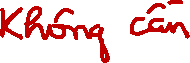 Không cần